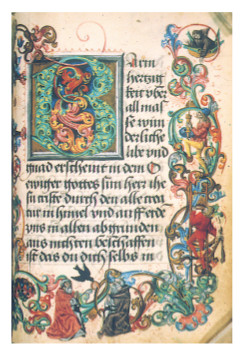 Barm
hertzig
keit vber
all mas
se wun
derliche
liebe vnd
gnad erscheint in dem O
ewiger gottes sun herr ihe
su criste durch den alle crea
tur in himel vnd auff erde
vnd in allen abgrunden
aus nichten beschaffen
ist das du dich selbs in